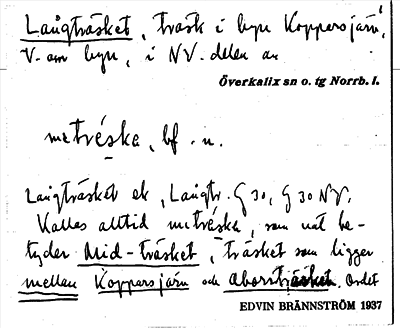 Långträsket, träsk i byn Koppersjärv,
V. om byn, i NV. delen av
Överkalix sn o. tg Norrb. l.
metréska, bf. n.
Långträsket ek, Långtr. G 30, G 30 NV.
Kallas alltid metréska, som nat be-
tyder Mid-träsket, träsket som ligger
mellan Koppersjärv och Aborrträsket. Ordet
EDVIN BRÄNNSTRÖM 1937